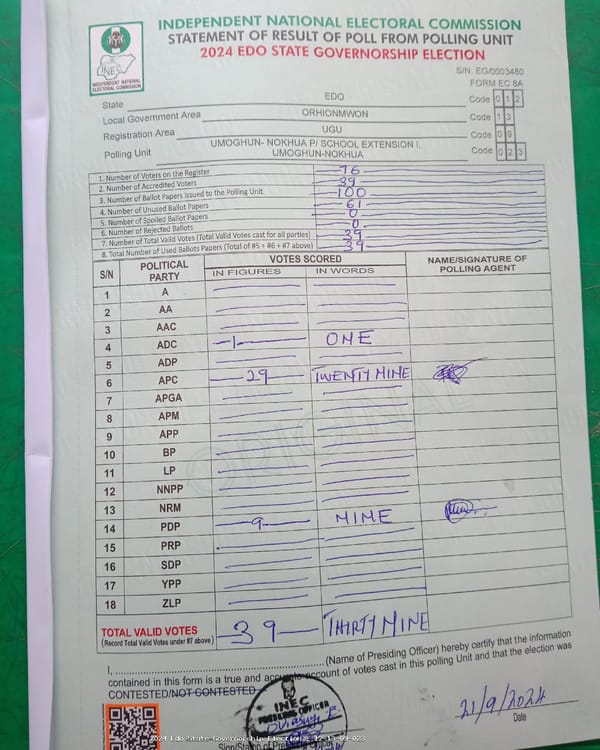 INDEPENDENT NATIONAL ELECTORAL COMMISSION
STATEMENT OF RESULT OF POLL FROM POLLING UNIT
2024 EDO STATE GOVERNORSHIP ELECTION
INEC
INDEPENDENT NATIONAL
ELECTORAL COMMISSION
S/N. EG/0003480
FORM EC 8A
State EDO Code 0 1 2
Local Government Area ORHIONMWON Code 1 3
Registration Area UGU Code 0 9
Polling Unit UMOGHUN- NOKHUA P/ SCHOOL EXTENSION I, UMOGHUN-NOKHUA Code 0 2 3
1. Number of Voters on the Register 76
2. Number of Accredited Voters 39
3. Number of Ballot Papers issued to the Polling Unit 100
4. Number of Unused Ballot Papers 61
5. Number of Spoiled Ballot Papers 0
6. Number of Rejected Ballots 0
7. Number of Total Valid Votes (Total Valid Votes cast for all parties) 39
8. Total Number of Used Ballots Papers (Total of #5 + #6 + #7 above) 39
S/N POLITICAL PARTY VOTES SCORED NAME/SIGNATURE OF POLLING AGENT
IN FIGURES IN WORDS
1 A
2 AA
3 AAC
4 ADC 1 ONE
5 ADP
6 APC 29 TWENTY NINE
7 APGA
8 APM
9 APP
10 BP
11 LP
12 NNPP
13 NRM
14 PDP 9 NINE
15 PRP
16 SDP
17 YPP
18 ZLP
ORIGINAL
TOTAL VALID VOTES 39 THIRTY NINE
(Record Total Valid Votes under #7 above)
I, (Name of Presiding Officer) hereby certify that the information
contained in this form is a true and account of votes cast in this polling Unit and that the election was
CONTESTED/NOT CONTESTED
INEC
PRESIDING OFFICER
21/9/2024
Date
2024 Edo State Governorship Election
Sign/Stamp of Presiding Officer